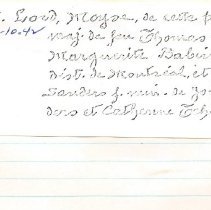 Lord, Moyse, de cette p
-10-42 maj. de feu Thomas
Marguerite Babin
dist. de Montréal, et
Sanders f. min. de Jo
ders et Catherine Tch